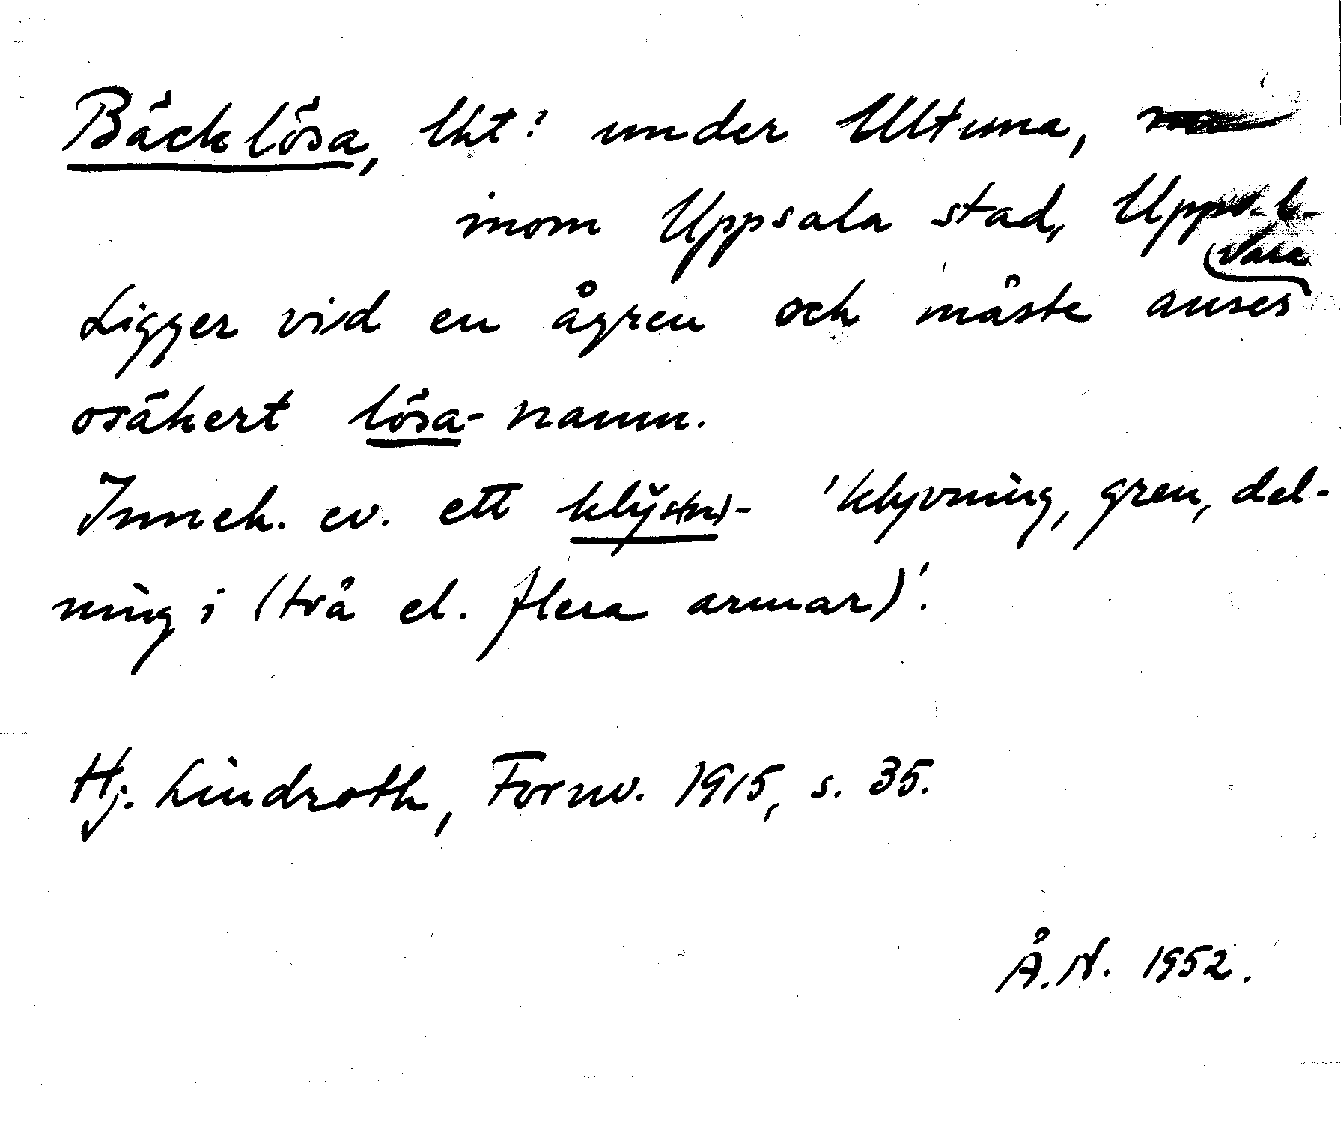 Bäcklösa, lht! under Ultuna,
inom Uppsala stad, Uppl.
Ligger vid en ågren och måste anses vara
osäkert lösa-namn.
Inneh. ev. ett klys(n)- 'klyvning, gren, del-
ning i (två el. flera armar)'.
Hj. Lindroth, Fornv. 1915, s. 35.
Å.N. 1952.